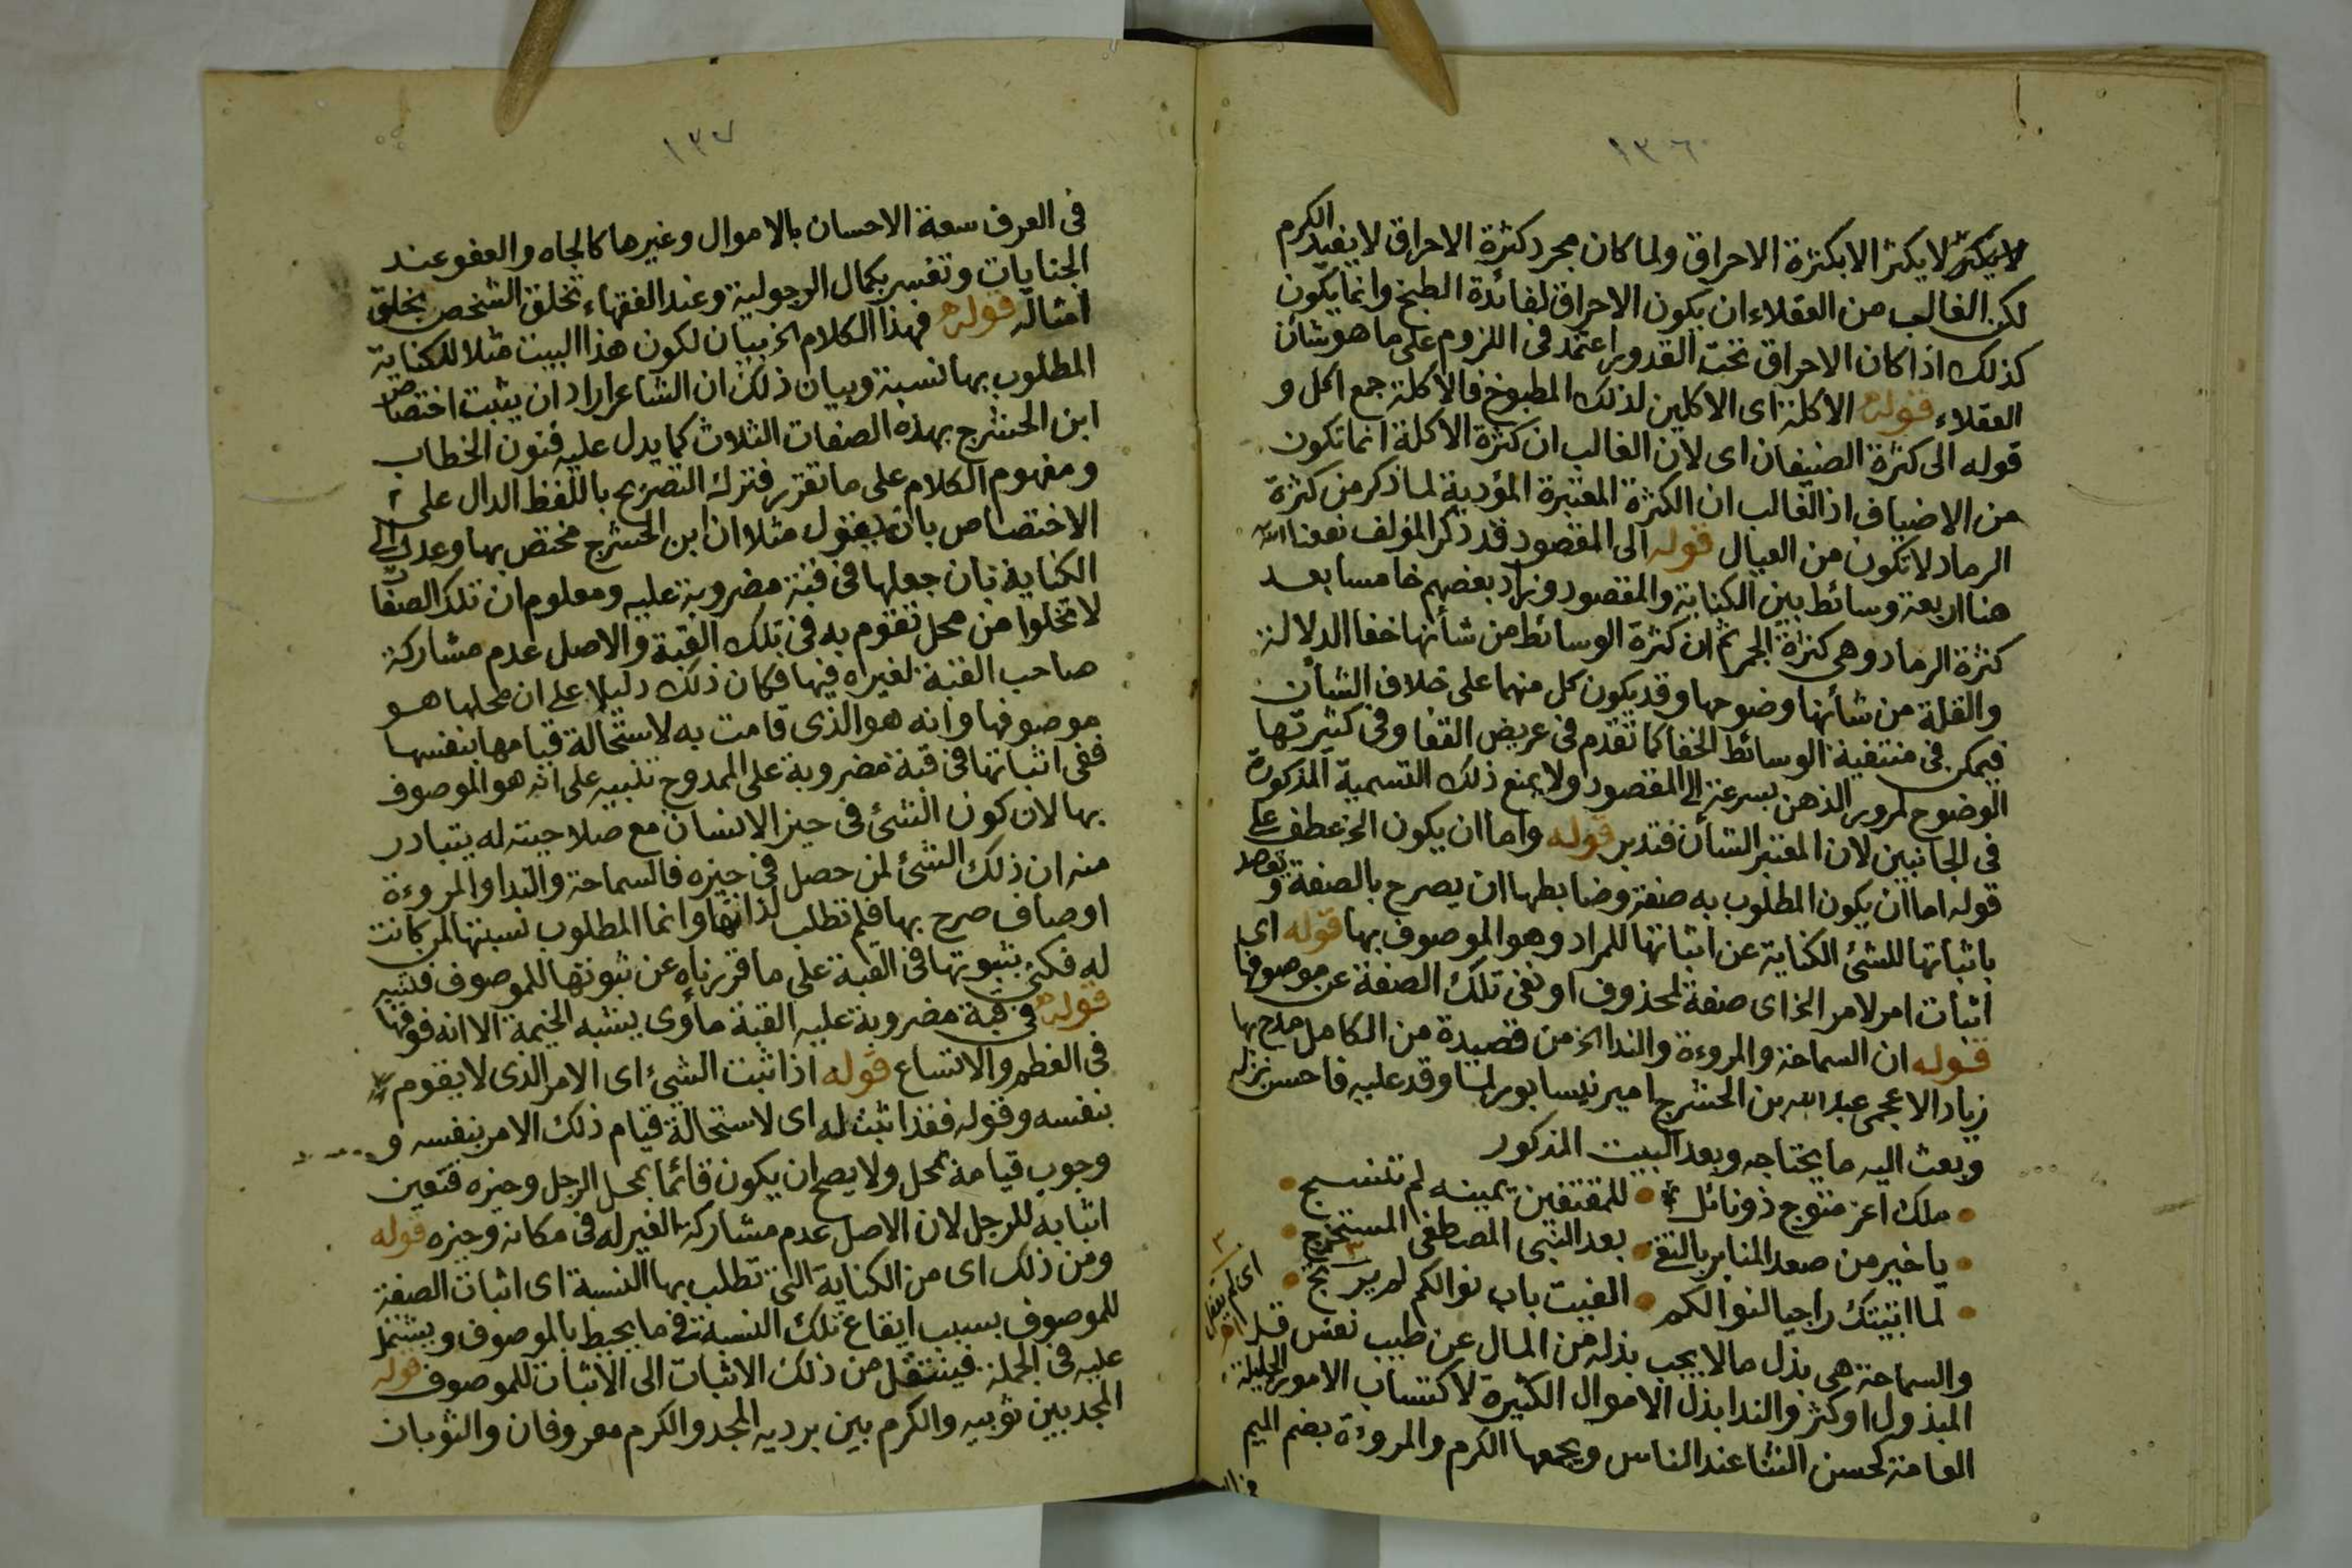 ١٣٦
لا يكثر الا بكثرة الاحراق ولما كان مجرد كثرة الاحراق لا يفيد الكرم
لكن الغالب من العقلاء ان يكون الاحراق لفائدة الطبخ وانما يكون
كذلك اذا كان الاحراق تحت القدور اعتمد فى اللزوم على ما هو شان
العقلاء قوله الاكلة اى الاكلين لذلك المطبوخ فالاكلة جمع اكل و
قوله الى كثرة الضيفان اى لان الغالب ان كثرة الاكلة انما تكون
من الاضياف اذ الغالب ان الكثرة المعتبرة المؤدية لما ذكر من كثرة
الرماد لا تكون من العيال قوله الى المقصود قد ذكر المؤلف نفعنا الله
هنا اربعة وسائط بين الكناية والمقصود وزاد بعضهم خامسا بعد
كثرة الرماد وهى كثرة الجمر ثم ان كثرة الوسائط من شأنها خفا الدلالة
والقلة من شأنها وضوحها وقد يكون كل منهما على خلاف الشأن
فيمكن فى منتفية الوسائط الخفا كما تقدم فى عريض القفا وفى كثيرتها
الوضوح لمرور الذهن بسرعة الى المقصود ولا يمنع ذلك التسمية المذكورة
فى الجانبين لان المعتبر الشأن فتدبر قوله واما ان يكون الخ عطف على
قوله اما ان يكون المطلوب به صفة وضابطها ان يصرح بالصفة و
باثباتها للشئ الكناية عن اثباتها للمراد وهو الموصوف بها قوله اى
اثبات امر لامر الخ اى صفة لمحذوف او نفى تلك الصفة عن موصوفها
قوله ان السماحة والمروءة والندا الخ من قصيدة من الكامل مدح بها
زياد الاعجمى عبد الله بن الحشرج امير نيسابور لما وفد عليه فاحسن نزله
وبعث اليه ما يحتاجه وبعد البيت المذكور
ملك اغر متوج ذو نائل للمقتفين يمينه لم تشنج
يا خير من صعد المنابر بالتقى بعد النبى المصطفى المستخرج
لما اتيتك راجيا لنوالكم الفيت باب نوالكم لم يرتج
والسماحة هى بذل ما لا يجب بذله من المال عن طيب نفس قل
المبذول او كثر والندا بذل الاموال الكثيرة لاكتساب الامور الجليلة
العامة كحسن الثنا عند الناس ويجمعها الكرم والمروءة بضم الميم
١٣٧
فى العرف سعة الاحسان بالاموال وغيرها كالجاه والعفو عند
الجنايات وتفسر بكمال الرجولية وعند الفقهاء تخلق الشخص بخلق
امثاله قوله فهذا الكلام الخ بيان لكون هذا البيت مثلا للكناية
المطلوب بها نسبة وبيان ذلك ان الشاعر اراد ان يثبت اختصاص
ابن الحشرج بهذه الصفات الثلاث كما يدل عليه فنون الخطاب
ومفهوم الكلام على ما تقرر فترك التصريح باللفظ الدال على
الاختصاص بان يقول مثلا ان ابن الحشرج مختص بها وعدل الى
الكناية بان جعلها فى قبة مضروبة عليه ومعلوم ان تلك الصفات
لا تخلوا من محل تقوم به فى تلك القبة والاصل عدم مشاركة
صاحب القبة لغيره فيها فكان ذلك دليلا على ان محلها هو
موصوفها وانه هو الذى قامت به لاستحالة قيامها بنفسها
ففى اثباتها فى قبة مضروبة على الممدوح تنبيه على انه هو الموصوف
بها لان كون الشئ فى حيز الانسان مع صلاحيته له يتبادر
منه ان ذلك الشئ لمن حصل فى حيزه فالسماحة والندا والمروءة
اوصاف صرح بها فلم تطلب لذاتها وانما المطلوب نسبتها لمن كانت
له فكنى بثبوتها فى القبة على ما قررناه عن ثبوتها للموصوف فتنبه
قوله فى قبة مضروبة عليه القبة مأوى يشبه الخيمة الا انه فوقها
فى العظم والاتساع قوله اذا ثبت الشئ اى الامر الذى لا يقوم
بنفسه وقوله فقد اثبت له اى لاستحالة قيام ذلك الامر بنفسه و
وجوب قيامه بمحل ولا يصح ان يكون قائما بمحل الرجل وحيزه فتعين
اثباته للرجل لان الاصل عدم مشاركة الغير له فى مكانه وحيزه قوله
ومن ذلك اى من الكناية التى تطلب بها النسبة اى اثبات الصفة
للموصوف بسبب ايقاع تلك النسبة فى ما يحيط بالموصوف ويشتمل
عليه فى الجملة فينتقل من ذلك الاثبات الى الاثبات للموصوف قوله
المجد بين ثوبيه والكرم بين برديه المجد والكرم معروفان والثوبان